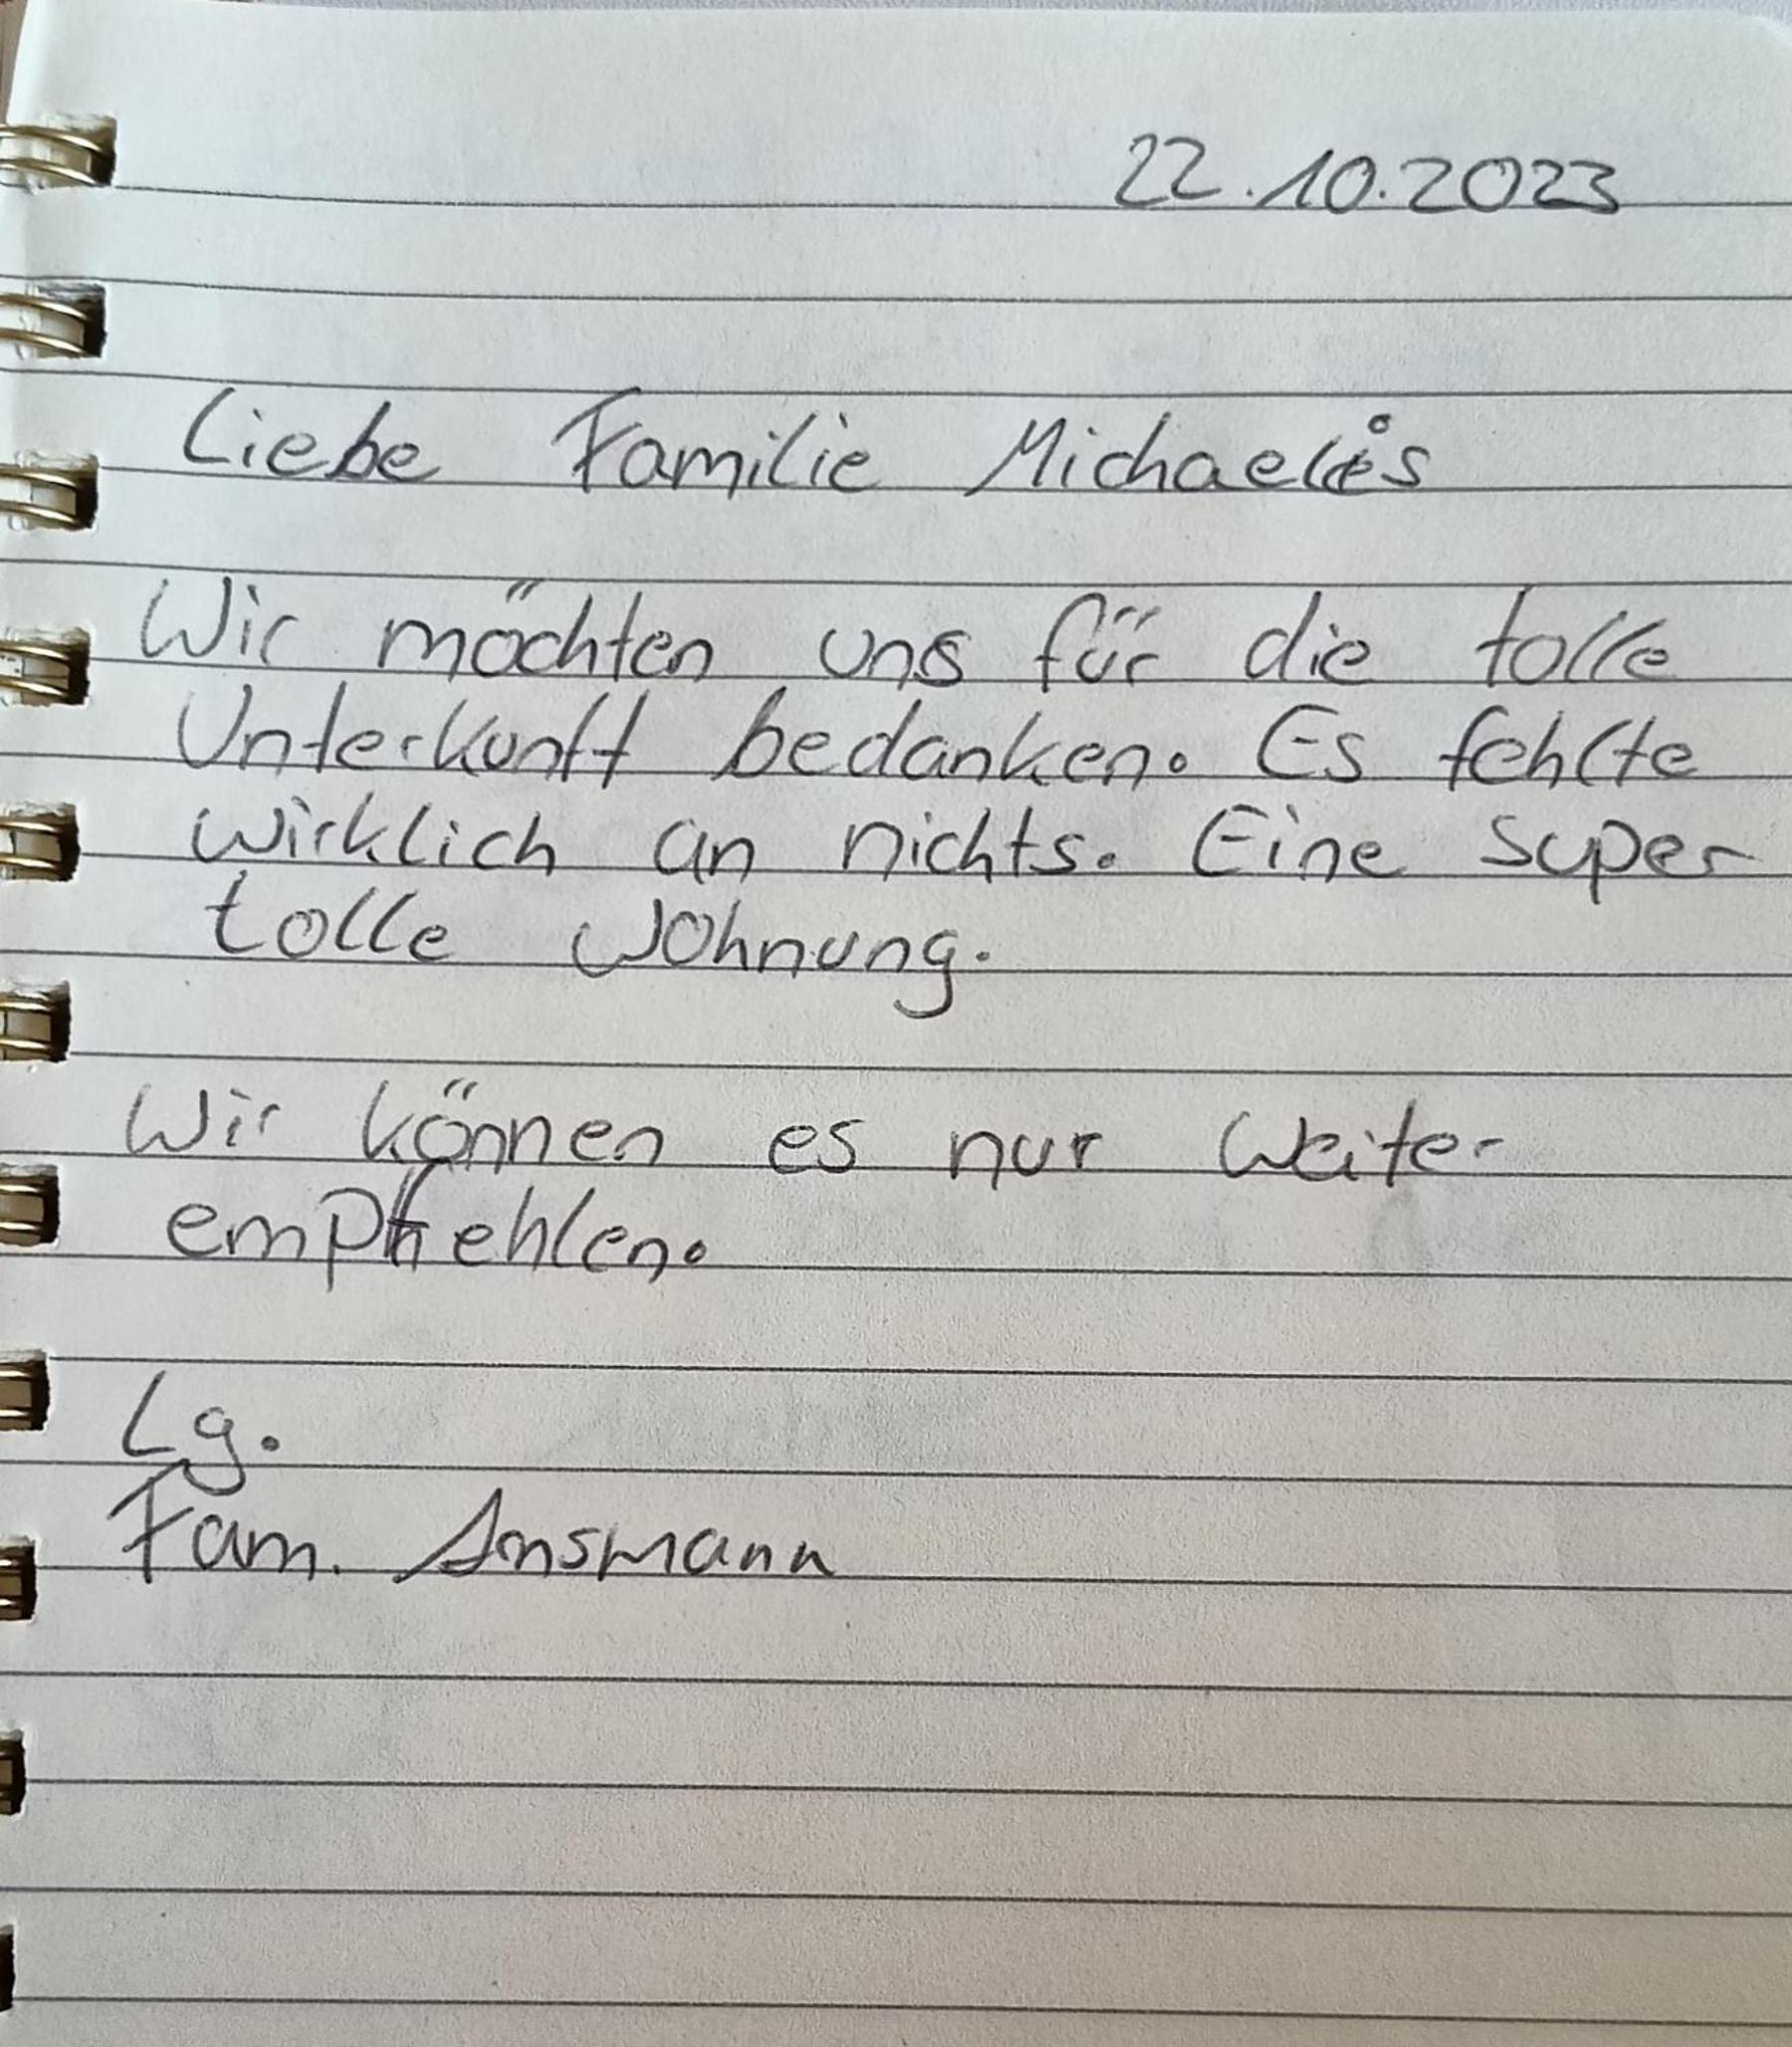 22.10.2023
Liebe Familie Michaelis
Wir möchten uns für die tolle
Unterkunft bedanken. Es fehlte
wirklich an nichts. Eine super
tolle Wohnung.
Wir können es nur weiter
empfehlen.
Lg.
Fam. Ansmann